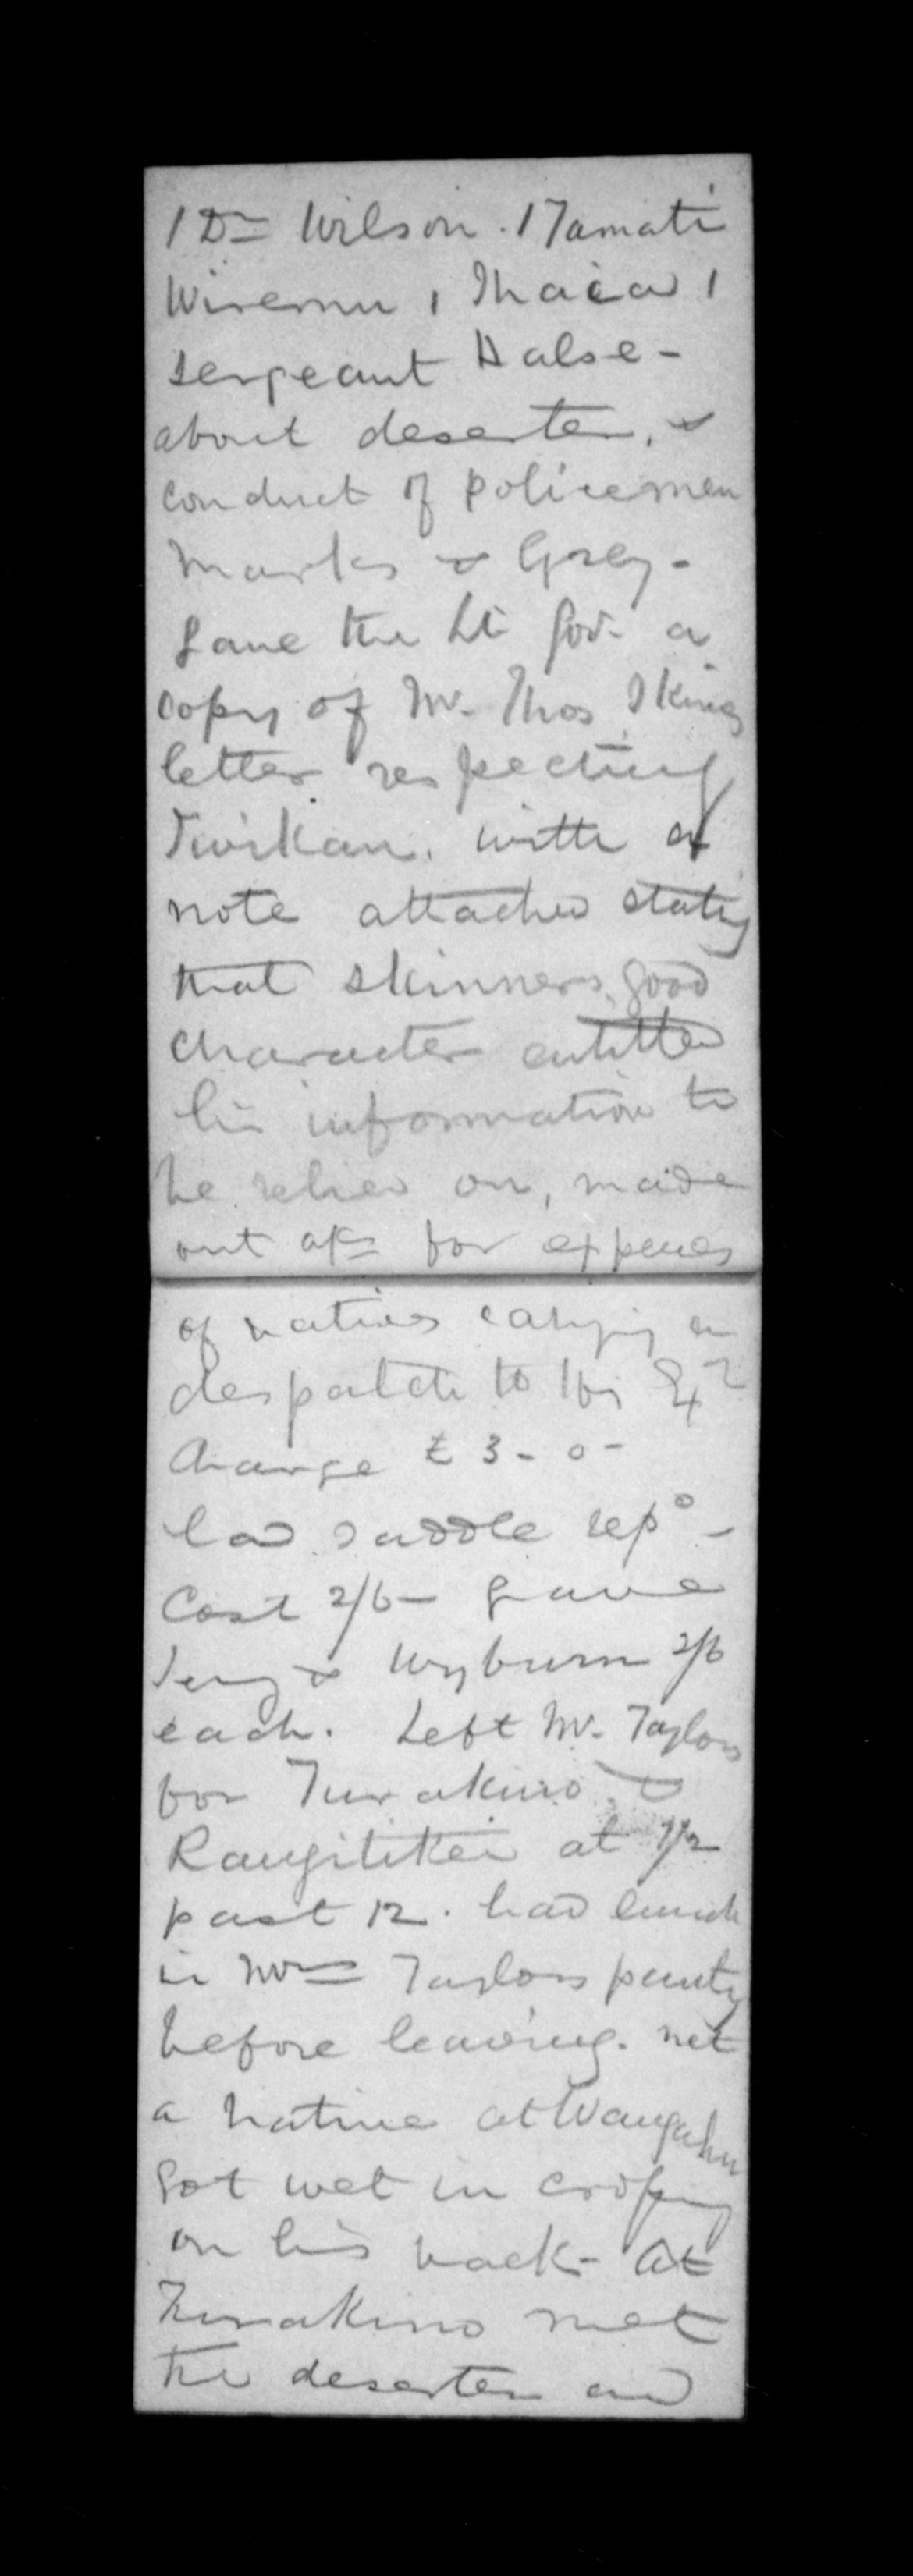 1 Dr Wilson. 1 Tamati
Wiremu, 1 Ihaia, 1
Sergeant Halse -
about deserter, &
conduct of policemen
Marks & Grey -
Gave the Lt Gov. a
copy of Mr. Thos King
letter respecting
with a
note attached stating
that Skinners good
character entitled
his information to
be relied on, made
out a/cs for expenses
of natives carrying on
despatch to His Ex
charge £3-0-
had saddle repd -
Cost 2/6 - gave
& Wyburn 2/6
each. Left Mr. Taylors
for Turakino &
Rangitikei at 1/2
past 12. had lunch
in Mrs Taylors pantry
before leaving. met
a native at Wangahu
got wet in crossing
on his back - At
Turakino met
the deserter and